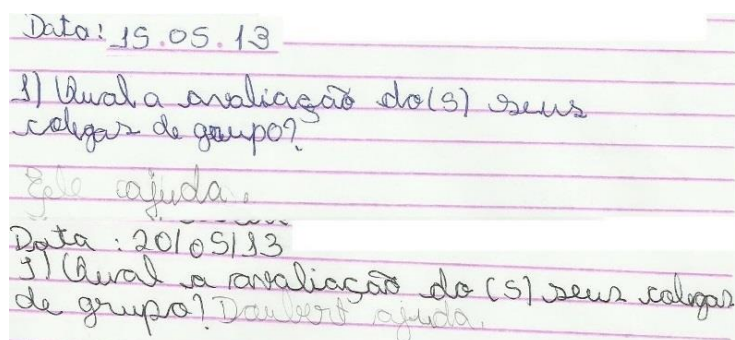 Data: 15.05.13
1) Qual a avaliação do(s) seus
colegas de grupo?
Ele ajuda.
Data: 20/05/13
1) Qual a avaliação do(s) seus colegas
de grupo? Daubert ajuda.